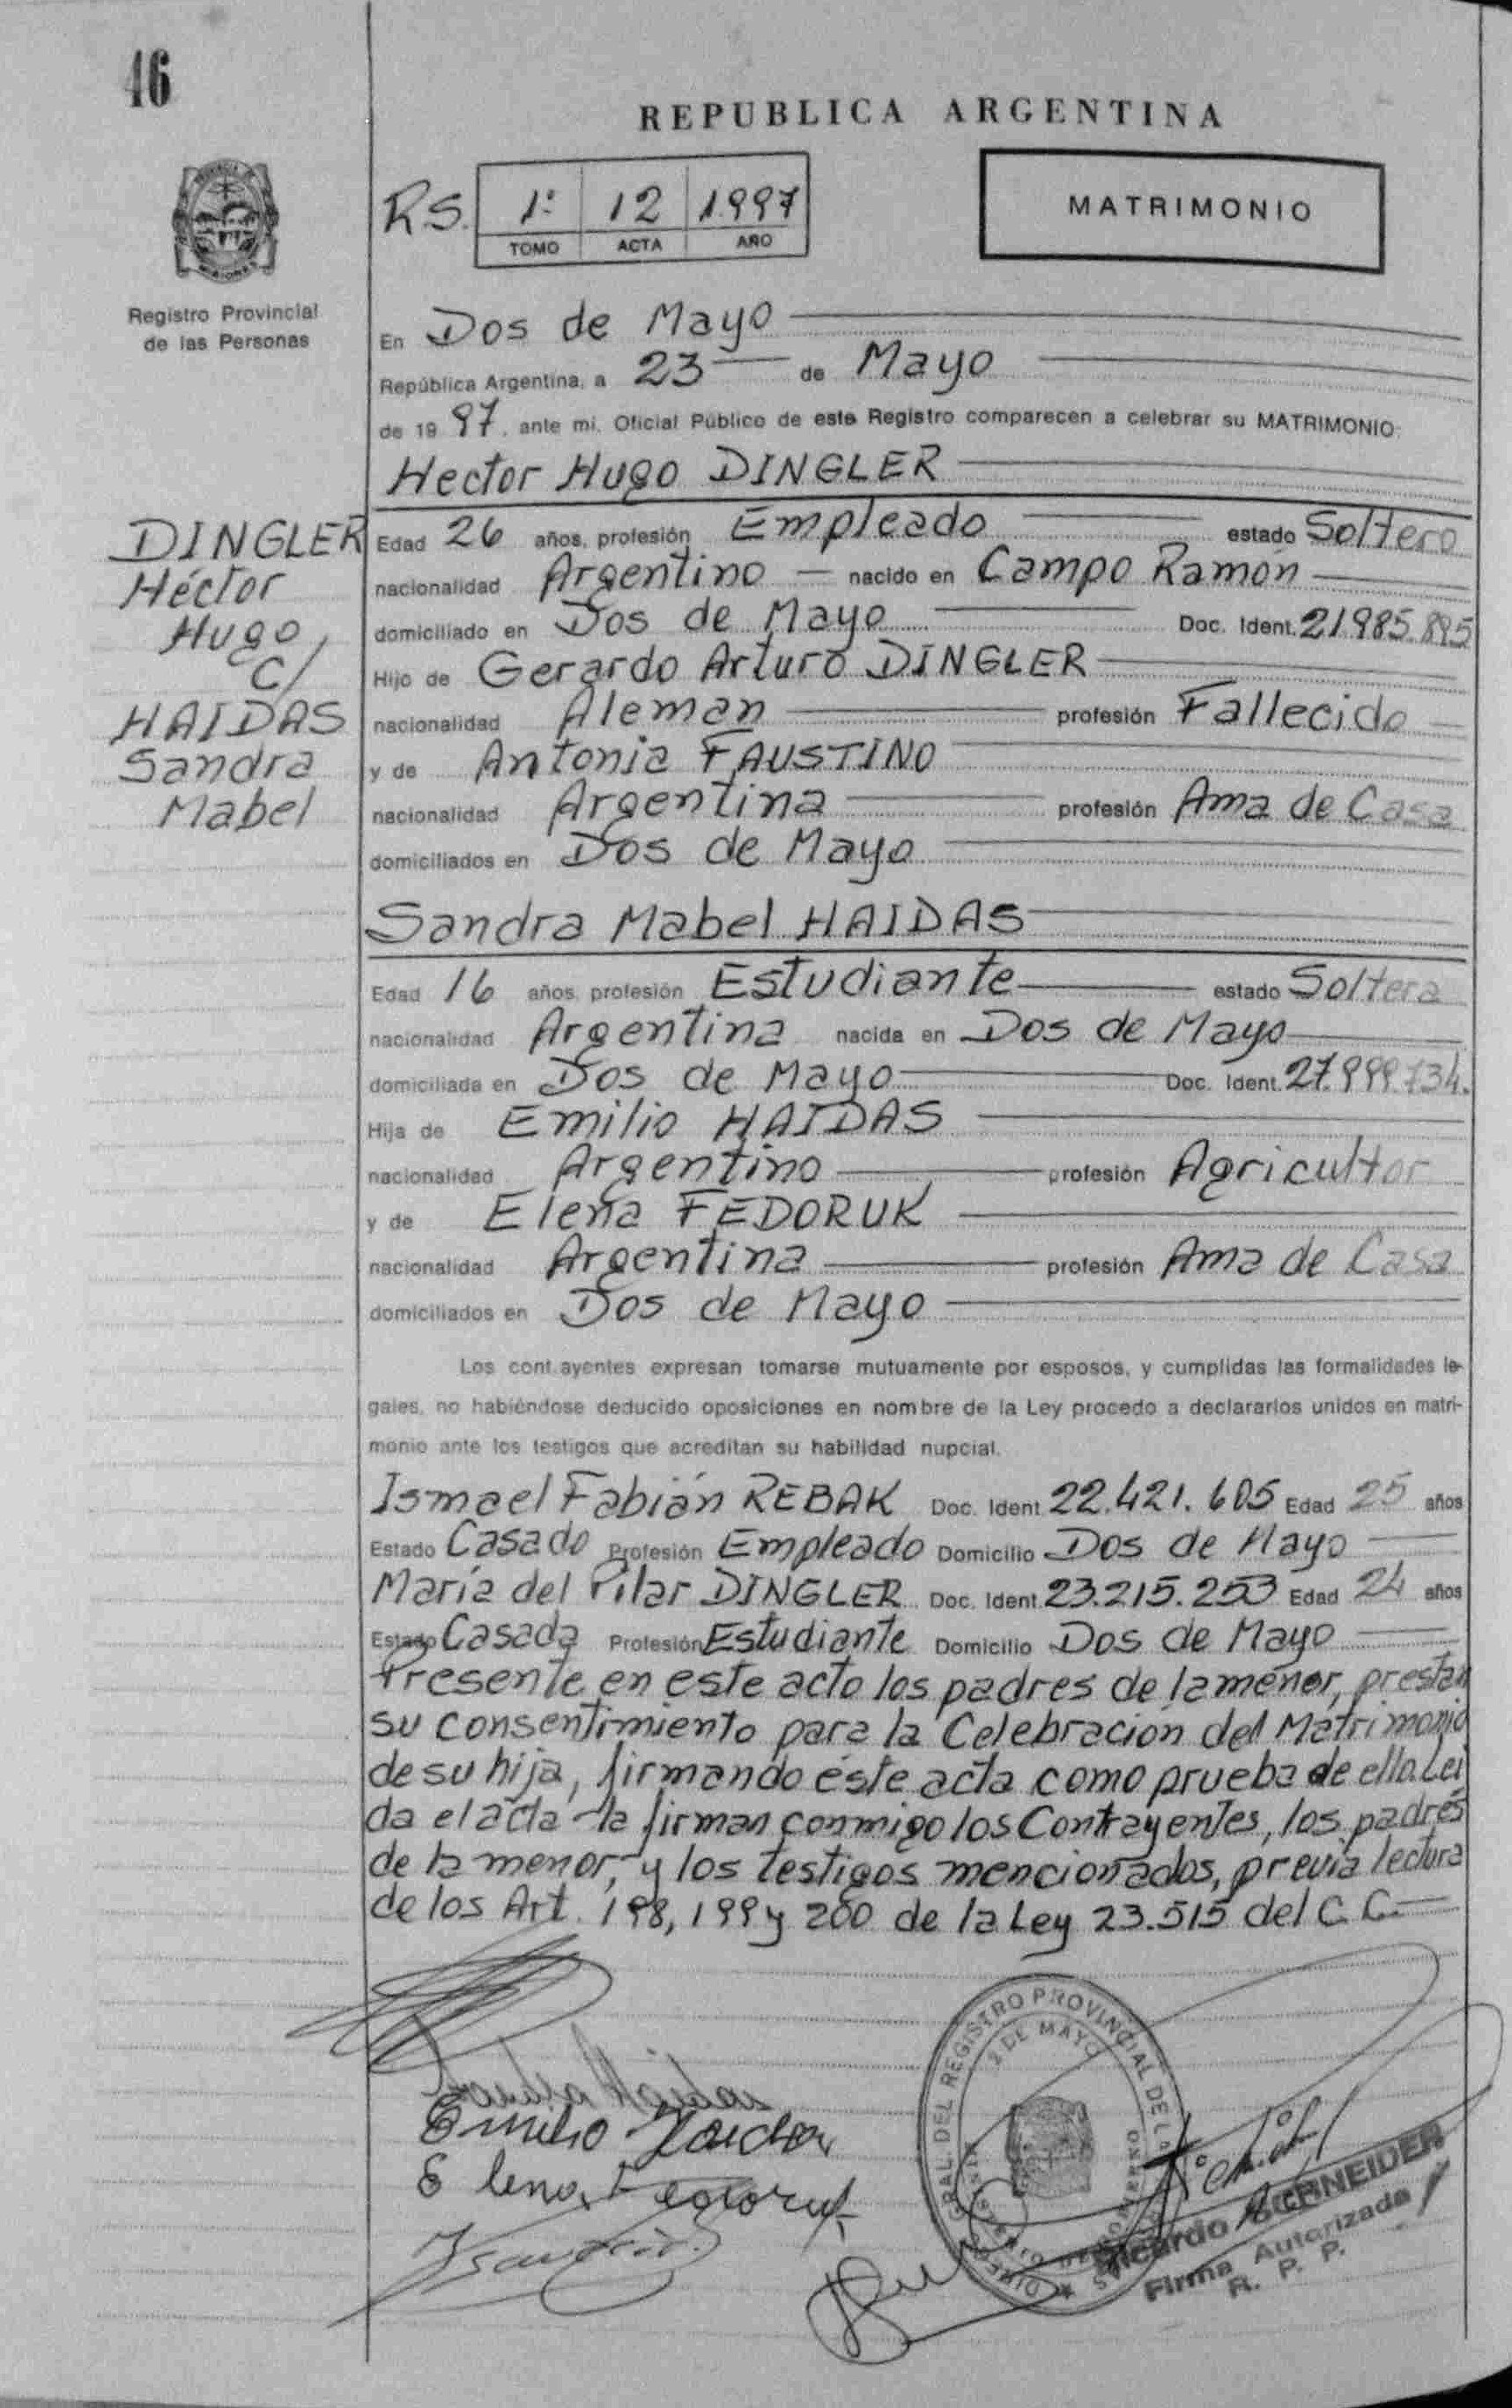 46
REPUBLICA ARGENTINA
RS. 1º 12 1997
TOMO ACTA AÑO
MATRIMONIO
Registro Provincial
de las Personas
En Dos de Mayo
República Argentina, a 23 de Mayo
de 19 97, ante mi, Oficial Público de este Registro comparecen a celebrar su MATRIMONIO:
Hector Hugo DINGLER
DINGLER
Héctor
Hugo
C/
HAIDAS
Sandra
Mabel
Edad 26 años, profesión Empleado estado Soltero
nacionalidad Argentino nacido en Campo Ramón
domiciliado en Dos de Mayo Doc. Ident. 21.985.895
Hijo de Gerardo Arturo DINGLER
nacionalidad Aleman profesión Fallecido
y de Antonia FAUSTINO
nacionalidad Argentina profesión Ama de Casa
domiciliados en Dos de Mayo
Sandra Mabel HAIDAS
Edad 16 años, profesión Estudiante estado Soltera
nacionalidad Argentina nacida en Dos de Mayo
domiciliada en Dos de Mayo Doc. Ident. 27.999.734.
Hija de Emilio HAIDAS
nacionalidad Argentino profesión Agricultor
y de Elena FEDORUK
nacionalidad Argentina profesión Ama de Casa
domiciliados en Dos de Mayo
Los cont.ayentes expresan tomarse mutuamente por esposos, y cumplidas las formalidades le-
gales, no habiéndose deducido oposiciones en nombre de la Ley procedo a declararlos unidos en matri-
monio ante los testigos que acreditan su habilidad nupcial.
Ismael Fabián REBAK Doc. Ident. 22.421.605 Edad 25 años
Estado Casado Profesión Empleado Domicilio Dos de Mayo
María del Pilar DINGLER Doc. Ident. 23.215.253 Edad 24 años
Estado Casada Profesión Estudiante Domicilio Dos de Mayo
Presente en este acto los padres de la menor, prestan
su consentimiento para la Celebración del Matrimonio
de su hija, firmando éste acta como prueba de ello. Lei
da el acta la firman conmigo los Contrayentes, los padres
de la menor, y los testigos mencionados, previa lectura
de los Art. 198, 199 y 200 de la Ley 23.515 del C.C.
Sandra Haidas
Emilio Haidas
Elena Fedoruk
GRAL. DEL REGISTRO PROVINCIAL DE LAS
2 DE MAYO
Ricardo SCHNEIDER
Firma Autorizada
R. P. P.